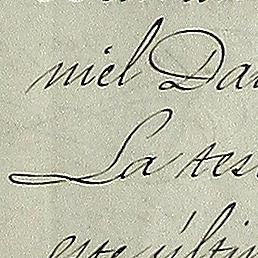 niel Da
La tes
este últim